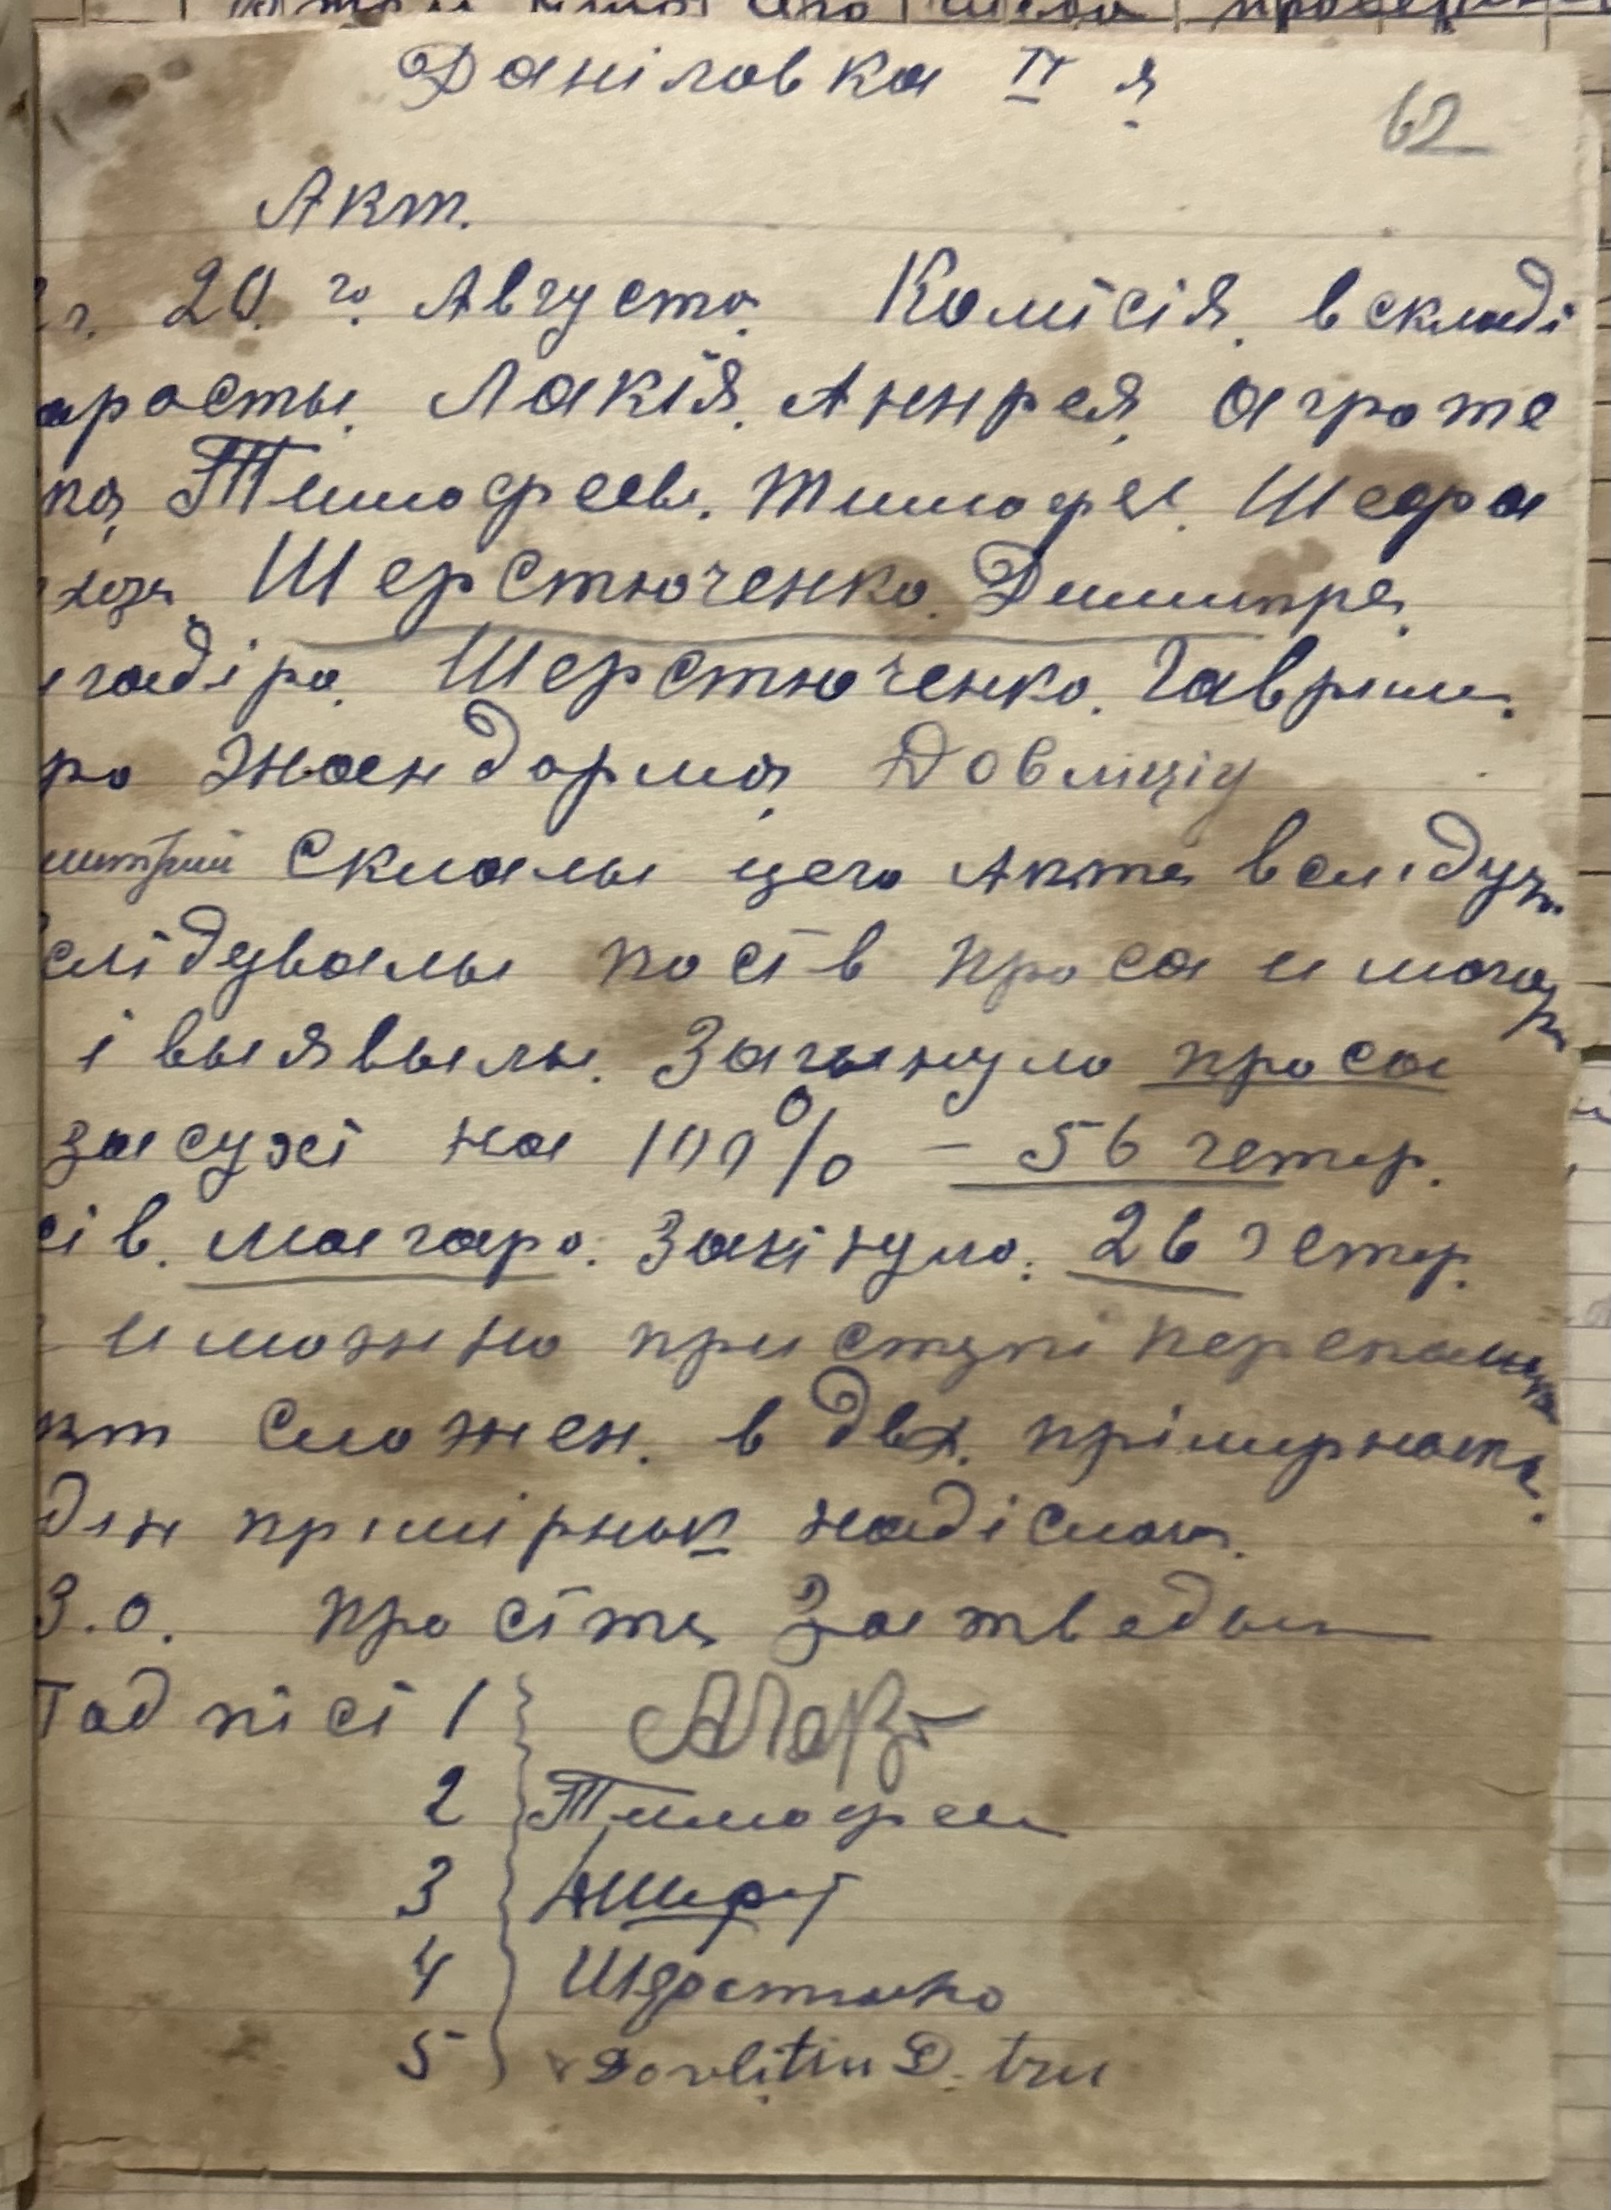 Даніловка II я
62
Акт.
г. 20. го. Августа. Комісія. в складі
арости. Лакія. Аннрея. агроте
ка, Тимофеев. Тимофея. Шефа
Шерстюченко. Димитре.
гадіра. Шерстюченко. Гавриш.
ро Жандарма, Довліціу
митрий Склалы цего Акта в слідуч.
слідувалы посів проса и могар
і выявылы. Загынуло проса
засухі на 100% – 56 гетар.
ів. магара. Загінуло. 26 гетар.
и можно приступі перепашк
кт сложен. в двх. прімірнокы.
дін прімірнык надіслан.
З.О. просітя Затведыт
Тадпісі 1
2 Тимофеев
3
4 Шерстюко
5 Dovlitiu D. tru